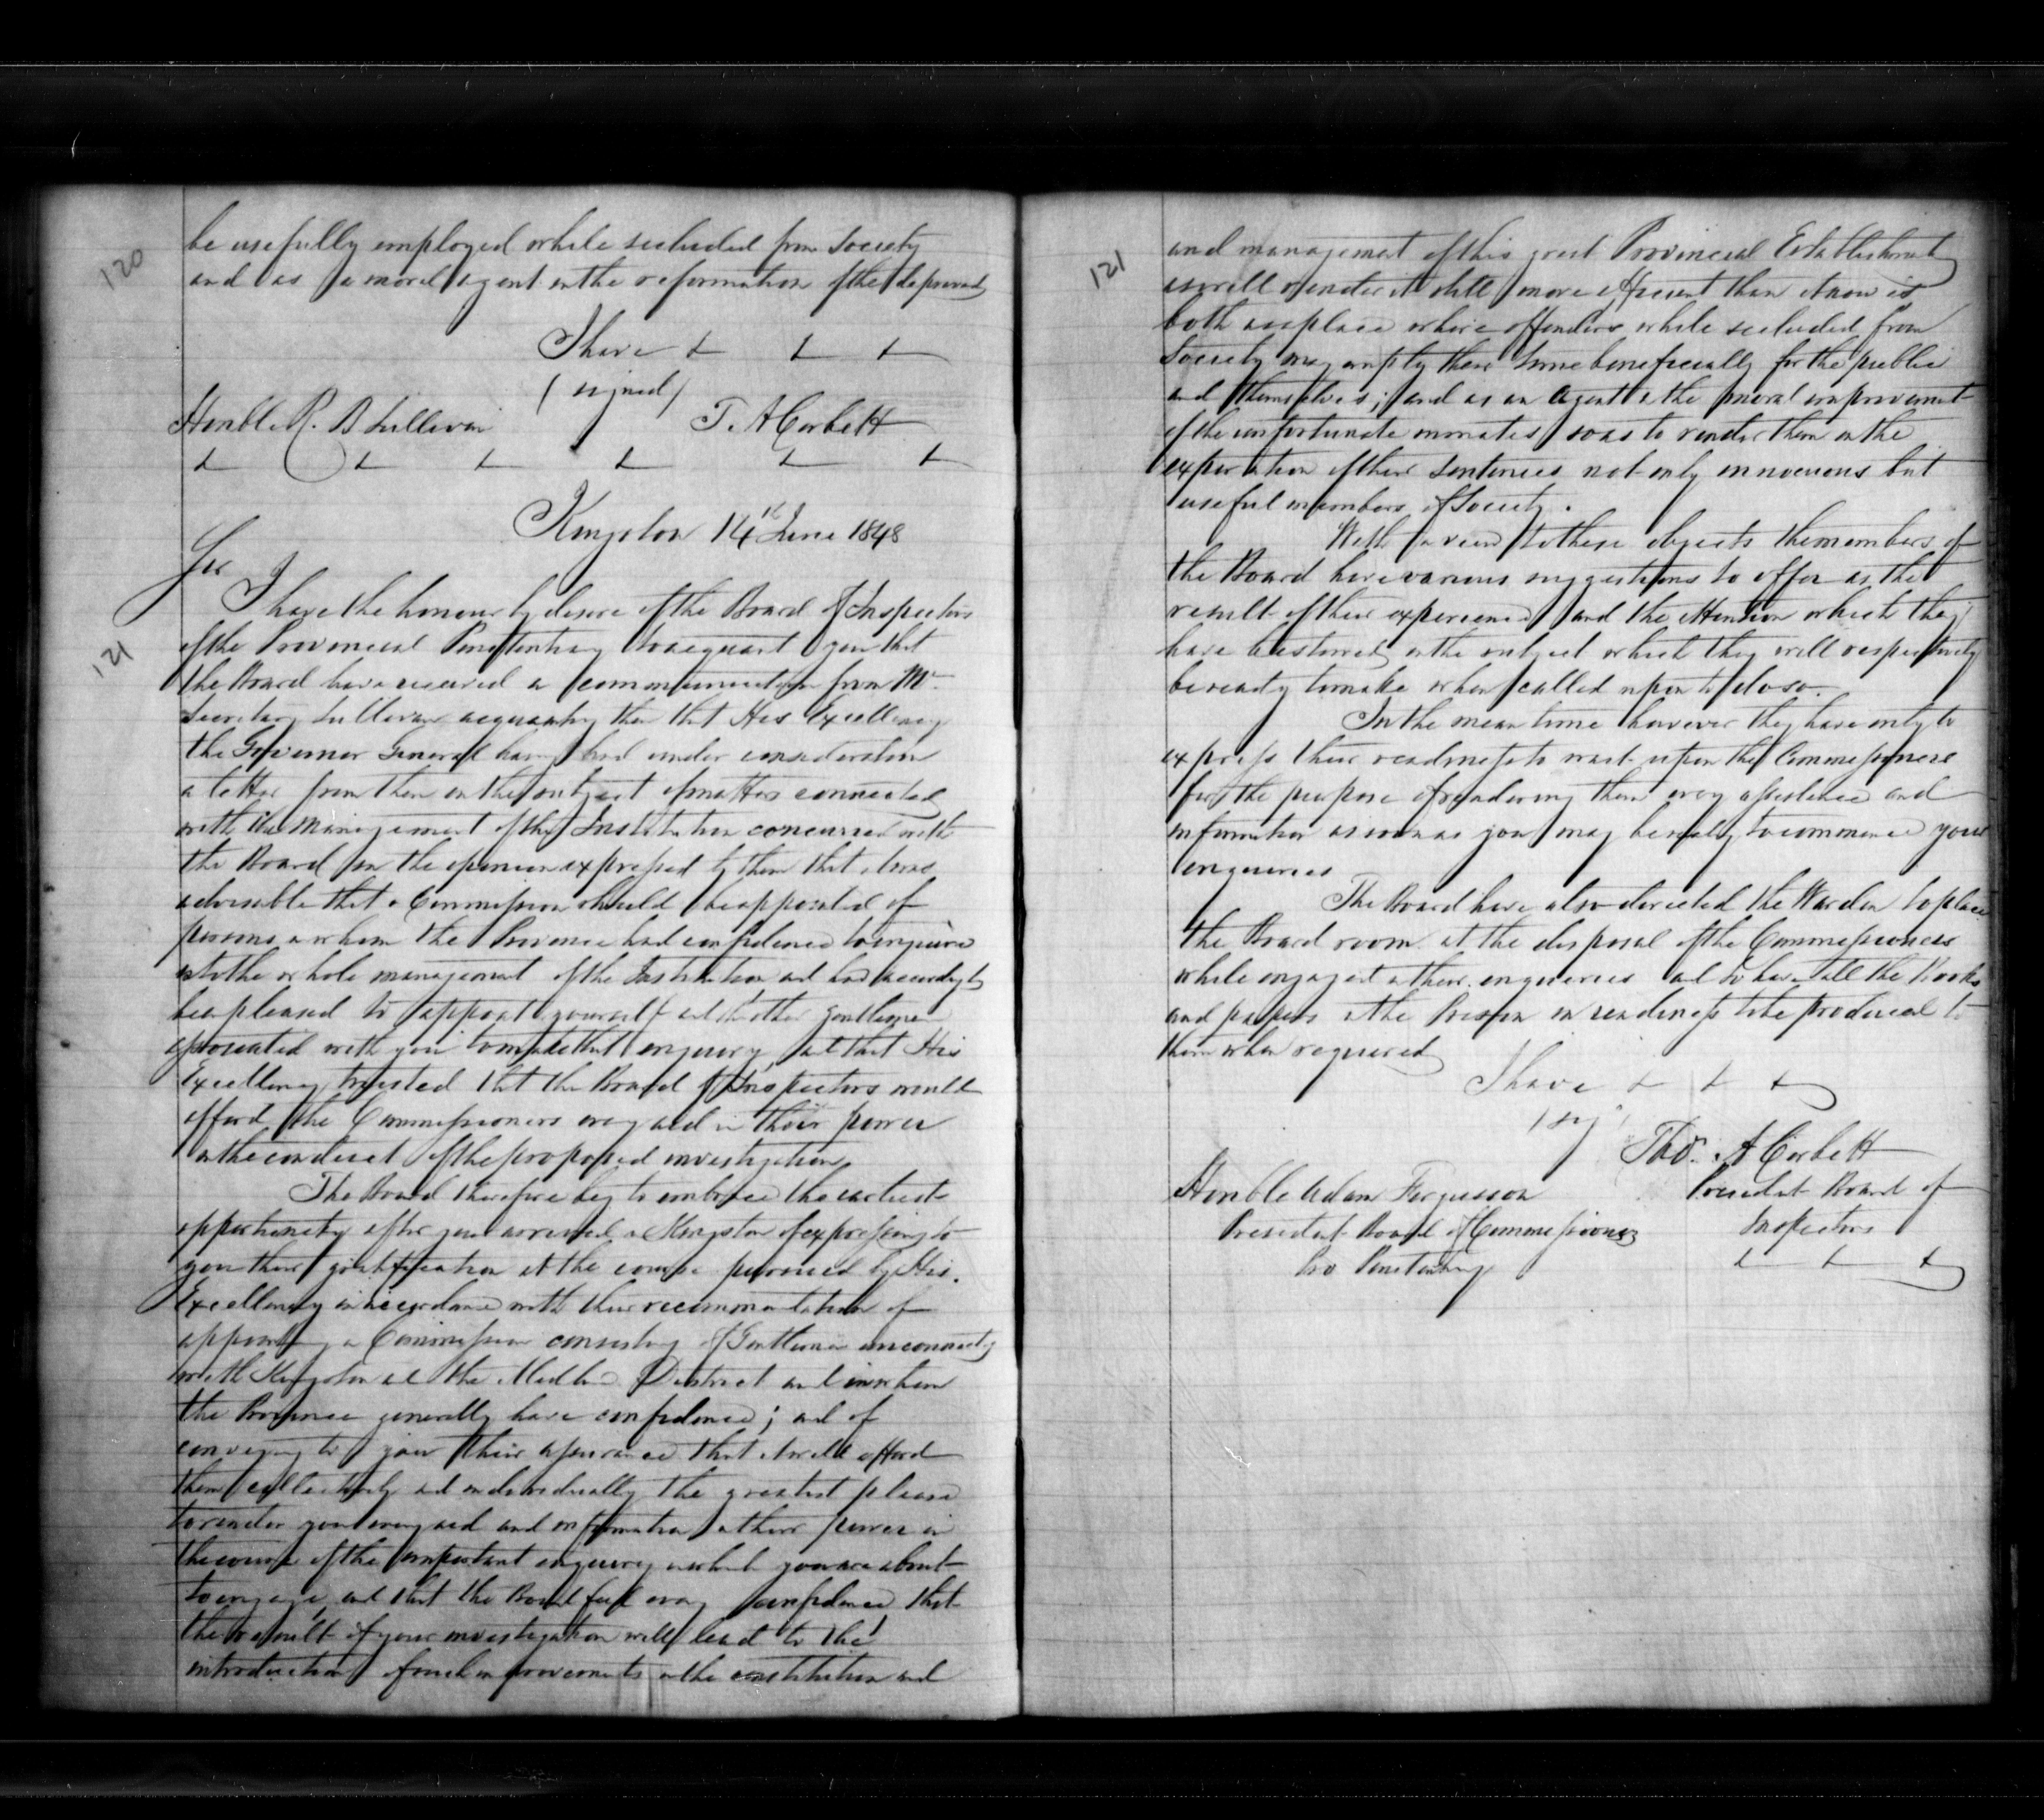 120
be usefully employed while secluded from Society
and as a moral agent in the reformation of the depraved
I have &c &c &c
(signed)
Honble R. B Sullivan T. A Corbett
&c &c &c &c &c &c
Kingston 14th June 1848
Sir
121
I have the honour by desire of the Board of Inspectors
of the Provincial Penitentiary to acquaint you that
the Board have received a communication from Mr
Secretary Sullivan acquainting them that His Excellency
the Governor General having had under consideration
a letter from them on the subject of matters connected
with the management of the Institution concurred with
the Board in the opinion expressed by them that it was
advisable that a Commission should be appointed of
persons in whom the Province had confidence to enquire
into the whole management of the Institution and had accordingly
been pleased to appoint yourself and the other gentlemen
associated with you to make that enquiry and that His
Excellency trusted that the Board of Inspectors would
afford the Commissioners every aid in their power
in the conduct of the proposed investigation
The Board therefore beg to embrace the earliest
opportunity after your arrival in Kingston of expressing to
you their gratification at the course pursued by His
Excellency in accordance with their recommendation of
appointing a Commission consisting of Gentlemen unconnected
with Kingston and the Midland District and in whom
the Province generally have confidence; and of
conveying to you their assurance that it will afford
them collectively and individually the greatest pleasure
to render you every aid and information in their power in
the course of the important enquiry in which you are about
to engage and that the Board feel every confidence that
the result of your investigation will lead to the
introduction of such improvements in the constitution and
121
and management of this great Provincial Establishment
as will render it still more efficient than it now is
both as a place where offenders while secluded from
Society may employ their time beneficially for the public
and themselves; and as an agent in the moral improvement
of the unfortunate inmates so as to render them on the
expiration of their sentences not only innocuous but
useful members of Society.
With a view to these objects the members of
the Board have various suggestions to offer as the
result of their experience and the attention which they
have bestowed on the subject which they will respectively
be ready to make when called upon to do so.
In the mean time however they have only to
express their readiness to wait upon the Commissioners
for the purpose of rendering them every assistance and
information as soon as you may be ready to commence your
enquiries
The Board have also directed the Warden to place
the Board room at the disposal of the Commissioners
while engaged in their enquiries and to have all the Books
and papers in the Prison in readiness to be produced to
them when required
I have &c &c &c
(sig
Thos. A Corbett
Honble Adam Fergusson President Board of
President Board of Commissioners Inspectors
Pro Penitentiary &c &c &c